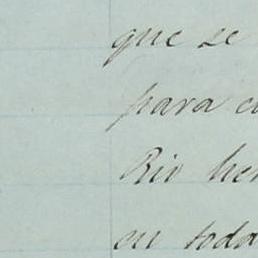 que se
para c
Rio her
en toda